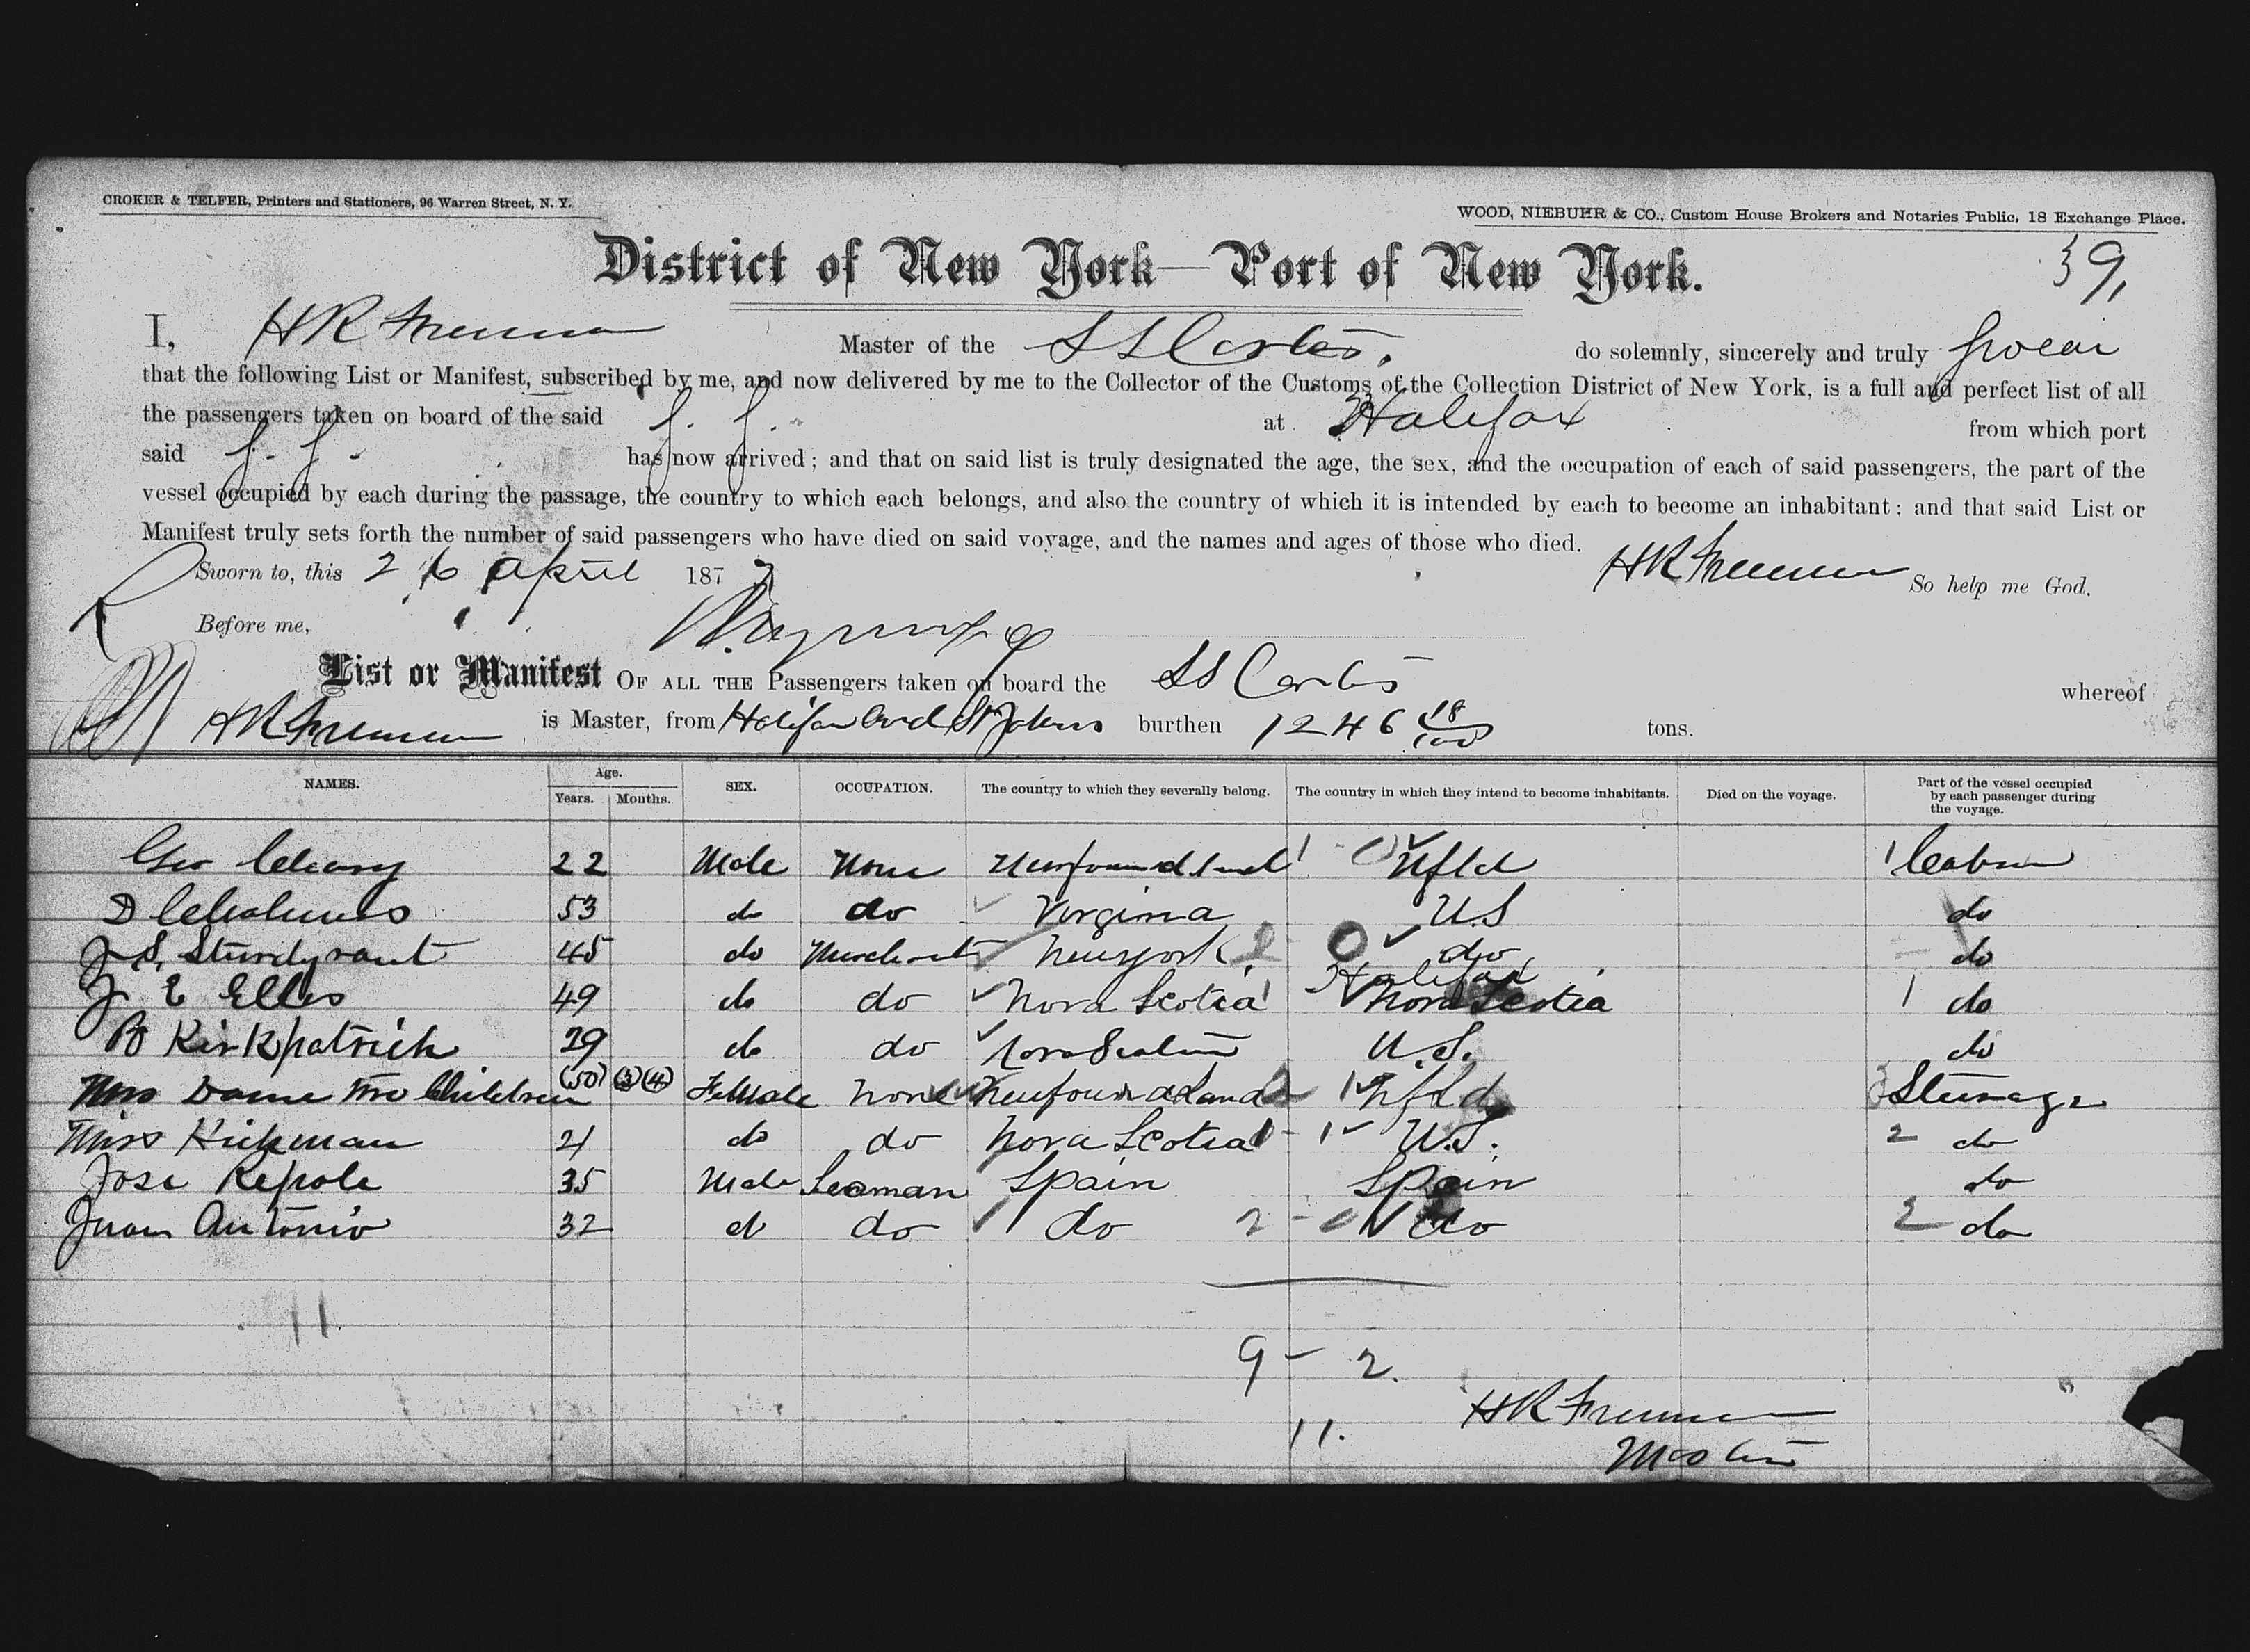 CROKER & TELFER, Printers and Stationers, 96 Warren Street, N. Y.
WOOD, NIEBUHR & CO., Custom House Brokers and Notaries Public, 18 Exchange Place.
District of New York—Port of New York.
39,
I, H R Freeman Master of the S S Cortes, do solemnly, sincerely and truly swear
that the following List or Manifest, subscribed by me, and now delivered by me to the Collector of the Customs of the Collection District of New York, is a full and perfect list of all
the passengers taken on board of the said S. S. at Halifax from which port
said S. S. has now arrived; and that on said list is truly designated the age, the sex, and the occupation of each of said passengers, the part of the
vessel occupied by each during the passage, the country to which each belongs, and also the country of which it is intended by each to become an inhabitant; and that said List or
Manifest truly sets forth the number of said passengers who have died on said voyage, and the names and ages of those who died.
Sworn to, this 26 April 187 H R Freeman So help me God.
Before me,
List or Manifest OF ALL THE Passengers taken on board the S S Cortes whereof
H R Freeman is Master, from Halifax and St Johns burthen 1246 18/100 tons.
NAMES. Age. Years. Months. SEX. OCCUPATION. The country to which they severally belong. The country in which they intend to become inhabitants. Died on the voyage. Part of the vessel occupied by each passenger during the voyage.
Geo Cleary 22 Male None Newfoundland 1 - 0 Nfld 1 Cabin
D 53 do do Virginia U.S do
J. S. Sturdyvant 45 do Merchant New York do do
J E Ellis 49 do do Nova Scotia 1 Halifax Nova Scotia 1 do
B Kirkpatrick 29 do do Nova Scotia U.S. do
Mrs Dame two Children (30) (3) (4) Female none Newfoundland 1 Nfld 3 Steerage
Miss Hickman 21 do do Nova Scotia 1 - 1 U.S. 2 do
Jose Repole 35 Male Seaman Spain Spain do
Juan Antonio 32 do do do 2 - do 2 do
11.
9 - 2.
11.
H R Freeman
Master